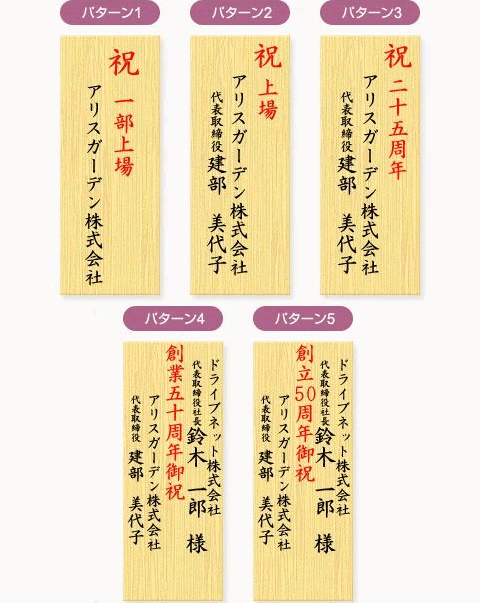 パターン1
祝 一部上場
アリスガーデン株式会社
パターン2
祝 上場
アリスガーデン株式会社
代表取締役 建部 美代子
パターン3
祝 二十五周年
アリスガーデン株式会社
代表取締役 建部 美代子
パターン4
ドライブネット株式会社
代表取締役社長 鈴木 一郎 様
創業五十周年御祝
アリスガーデン株式会社
代表取締役 建部 美代子
パターン5
ドライブネット株式会社
代表取締役社長 鈴木 一郎 様
創立50周年御祝
アリスガーデン株式会社
代表取締役 建部 美代子